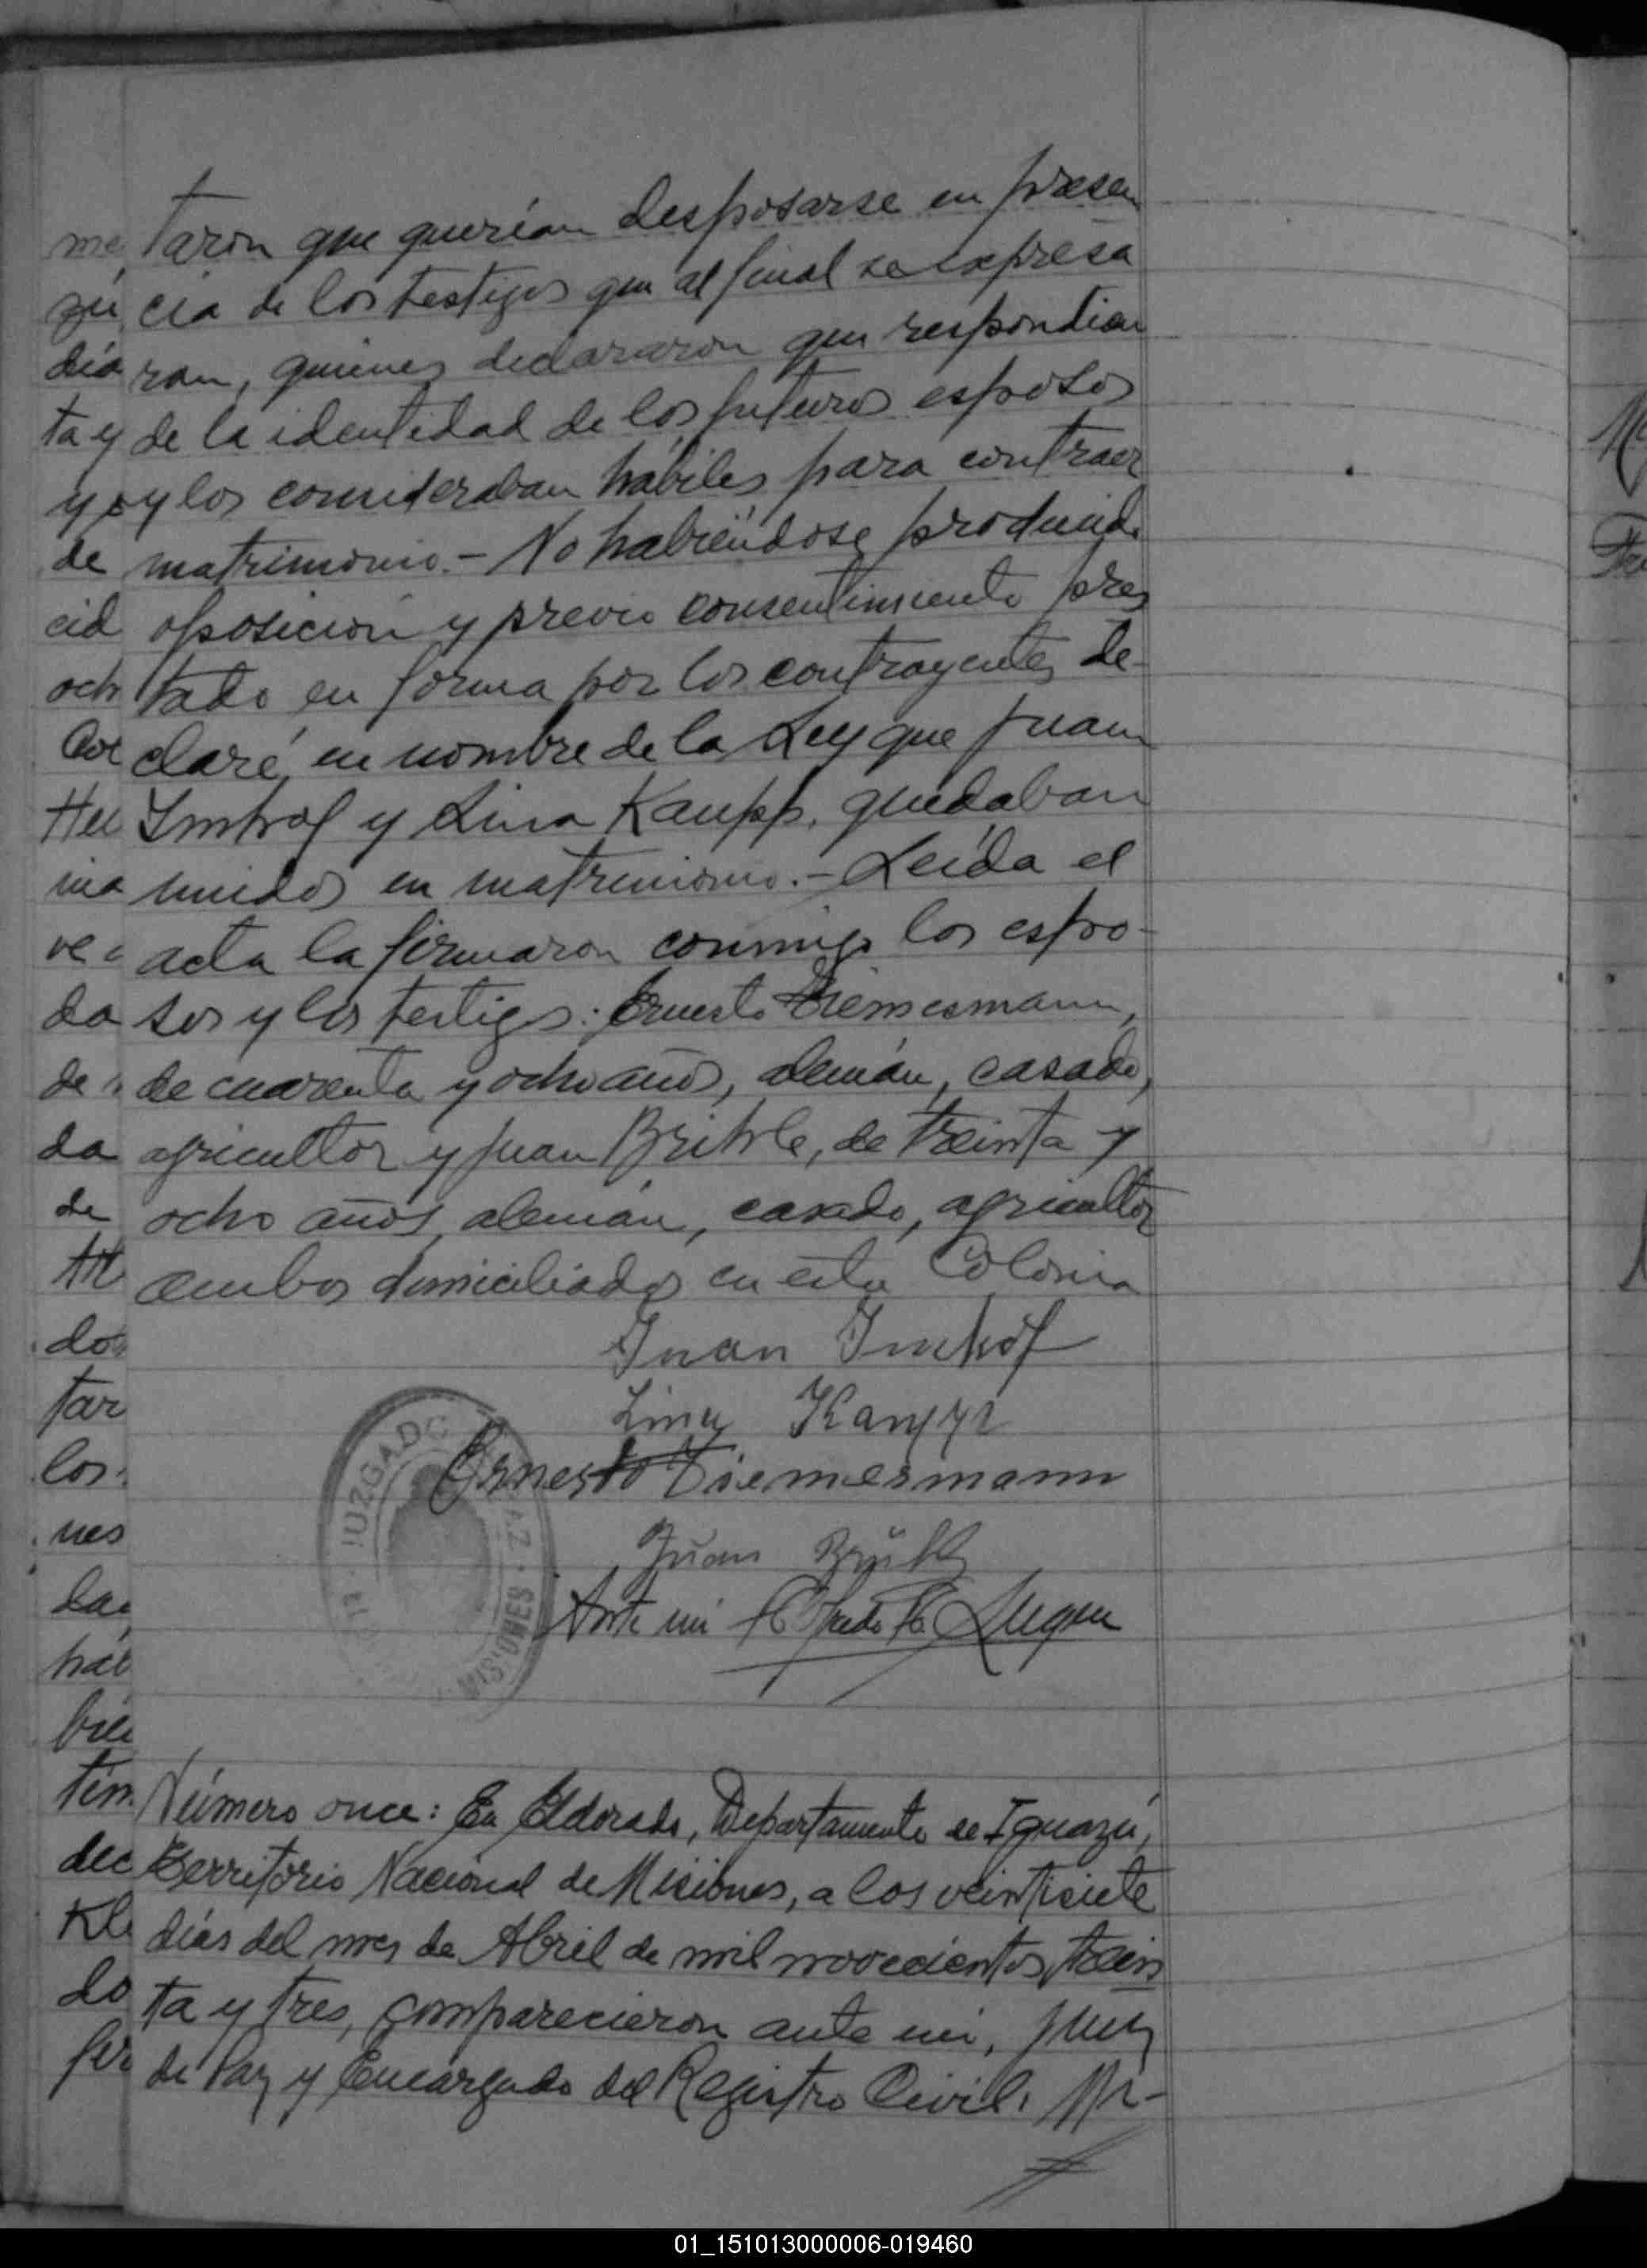 taron que querían desposarse en presen
cia de los testigos que al final se expresa
ran, quienes declararon que respondian
de la identidad de los futuros esposos
y los consideraban hábiles para contraer
matrimonio.- No habiéndose producido
oposición y previo consentimiento pres
tado en forma por los contrayentes de-
claré, en nombre de la Ley que Juan
Imhof y Lina Kaupp, quedaban
unidos en matrimonio.- Leída el
acta la firmaron conmigo los espo-
sos y los testigos: Ernesto Diemesmann,
de cuarenta y ocho años, alemán, casado,
agricultor y Juan Brihle, de treinta y
ocho años, alemán, casado, agricultor
ambos domiciliados en esta Colonia
Juan Imhof
Lina Kaupp
Ernesto Diemesmann
Juan
Ante mi
JUZGADO
MISIONES
Número once: En Eldorado, Departamento de Iguazú,
Territorio Nacional de Misiones, a los veintisiete
días del mes de Abril de mil novecientos trein
ta y tres, comparecieron ante mi, Juez
de Paz y Encargado del Registro Civil,
me
gú
día
ta y
y
de
cid
och
Hei
ma
ve
da
de
da
de
do
tar
los
nes
la
háb
bié
tim
dec
Kle
do
fir
01_151013000006-019460